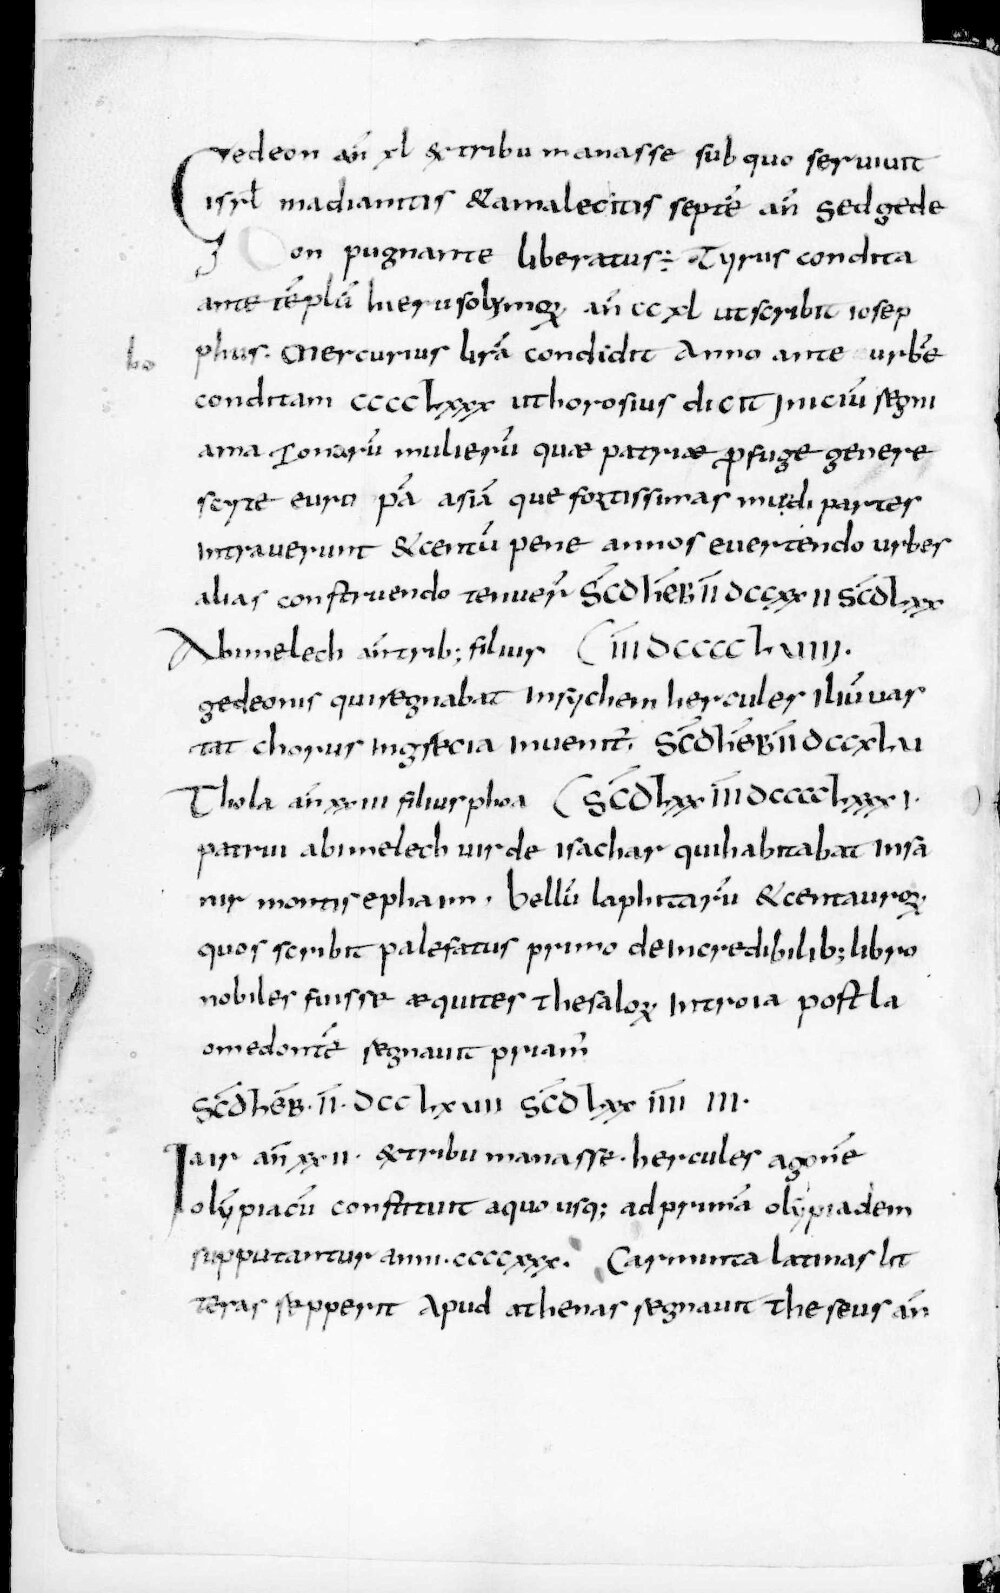 Gedeon an̄ xl &tribu manasse sub quo serviuit
isrl̄ madianitis &amalecitis septē an̄ Sed gede
on pugnante liberatus; Tyrus condita
ante tēplū hierusolymoꝝ an̄ ccxl ut scribit iosep
phus. Mercurius lirā condidit Anno ante urbē
conditam cccclxxx ut horosius dicit Iniciū regni
amazonarū mulierū quæ patriæ ꝓfuge genere
scyte euro pā asiā que fortissimas mundi partes
intraverunt &centū pene annos euertendo urbes
alias construendo tenuer̄ SC̄D hEB̄ II DCCXXII SC̄D LXX
Abimelech an̄ trib; filius ( III DCCCCLVIIII.
gedeonis qui regnabat in sychem hercules iliū vas
tat chorus in grecia inuenit̄. SC̄D hEB̄ II DCCXLVI
Thola an̄ xxiii filius phoa ( SC̄D LXX III DCCCCLXXXI.
patrui abimelech vir de isachar qui habitabat in sa
mir montis ephaim. bellū laphitarū &centauroꝝ.
quos scribit palefatus primo de incredibilib; libro
nobiles fuisse æquites thesaloꝝ in troia post la
omedontē regnauit priam̄
SC̄D hEB̄. II. DCCLXVIII SC̄D LXX IIII III.
Iair an̄ xxii. &tribu manasse. hercules agonē
olȳpiacū constituit a quo usq; ad primā olȳpiadem
supputantur anni. ccccxxx. Carmenta latinas lit
teras repperit Apud athenas regnauit theseus an̄
bo